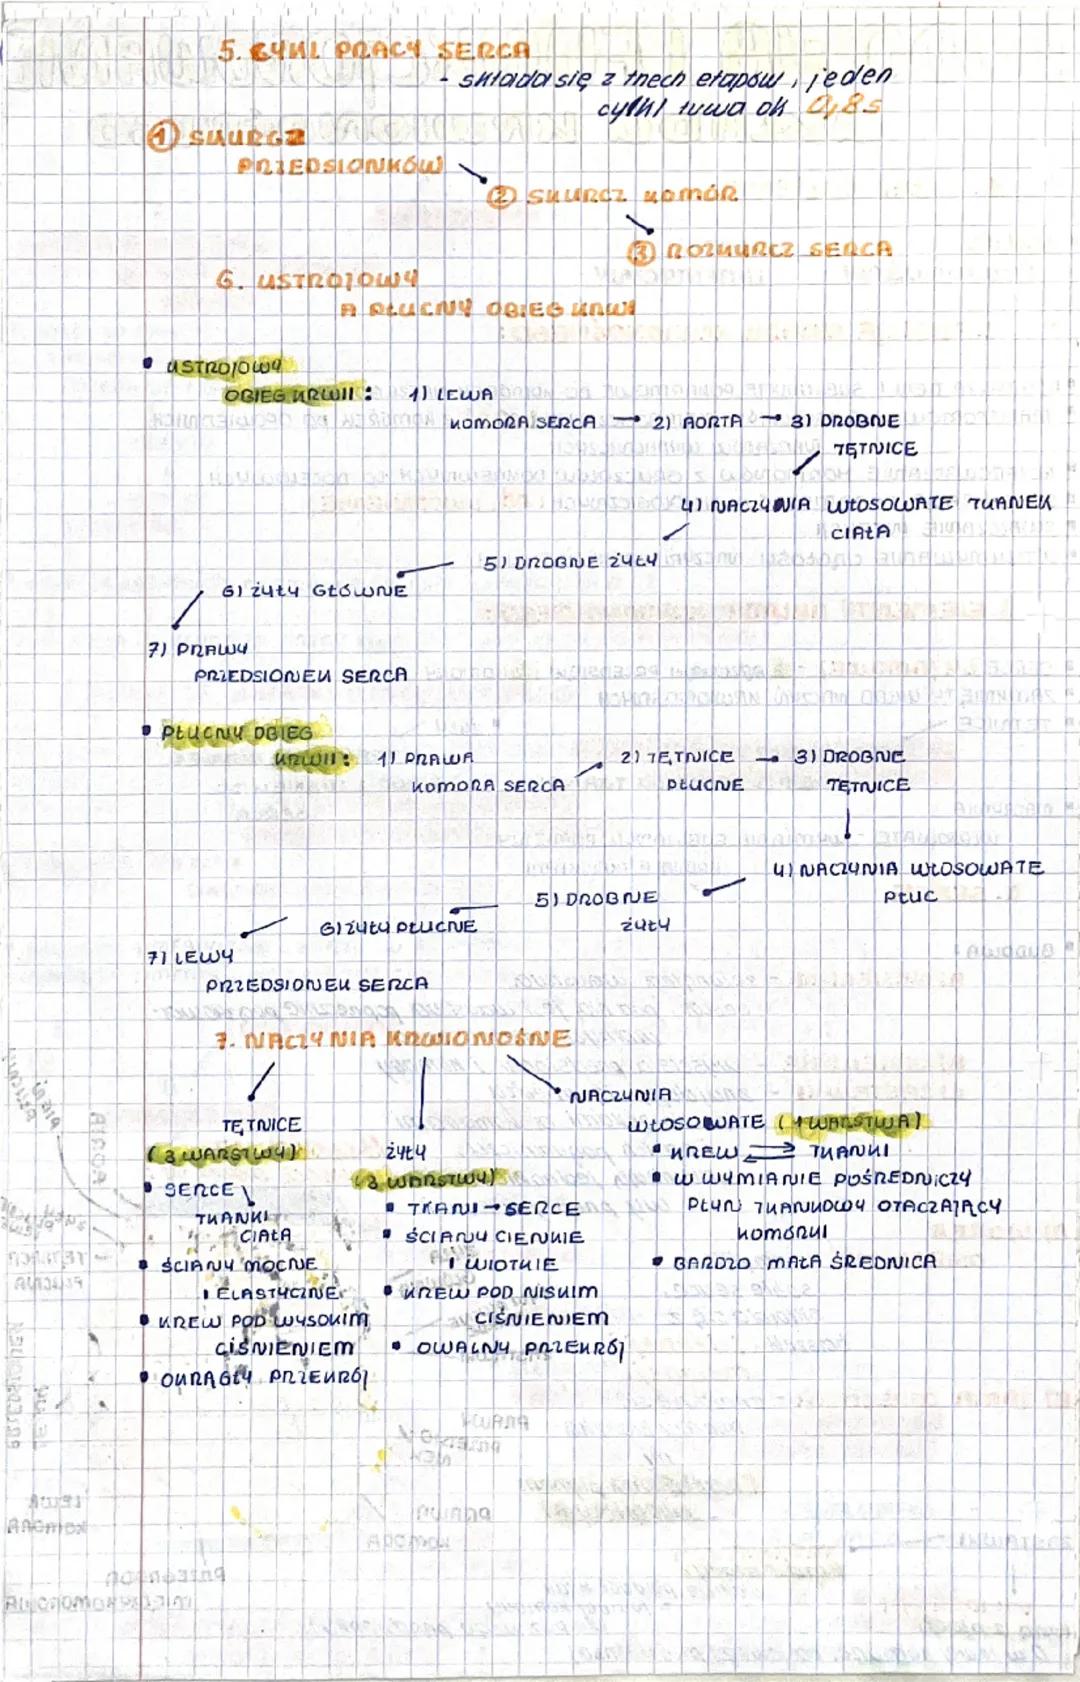 5. CYKL PRACY SERCA
- składa się z trzech etapów, jeden
cykl trwa ok 0,8s
① SKURCZ
PRZEDSIONKÓW
② SKURCZ KOMÓR
③ ROZKURCZ SERCA
6. USTROJOWY
A PŁUCNY OBIEG KRWI
• USTROJOWY
OBIEG KRWII: 1) LEWA
KOMORA SERCA → 2) AORTA → 3) DROBNE
TĘTNICE
4) NACZYNIA WŁOSOWATE TKANEK
CIAŁA
5) DROBNE ŻYŁY
6) ŻYŁY GŁÓWNE
7) PRAWY
PRZEDSIONEK SERCA
• PŁUCNY OBIEG
KRWII: 1) PRAWA 2) TĘTNICE → 3) DROBNE
KOMORA SERCA PŁUCNE TĘTNICE
4) NACZYNIA WŁOSOWATE
PŁUC
5) DROBNE
ŻYŁY
6) ŻYŁY PŁUCNE
7) LEWY
PRZEDSIONEK SERCA
7. NACZYNIA KRWIONOŚNE
TĘTNICE
(3 WARSTWY)
• SERCE
TKANKI
CIAŁA
• ŚCIANY MOCNE
I ELASTYCZNE
• KREW POD WYSOKIM
CIŚNIENIEM
• OKRĄGŁY PRZEKRÓJ
ŻYŁY
(3 WARSTWY)
• TKANI → SERCE
• ŚCIANY CIENKIE
I WIOTKIE
• KREW POD NISKIM
CIŚNIENIEM
• OWALNY PRZEKRÓJ
NACZYNIA
WŁOSOWATE (1 WARSTWA)
• KREW ⇄ TKANKI
• W WYMIANIE POŚREDNICZY
PŁYN TKANKOWY OTACZAJĄCY
KOMÓRKI
• BARDZO MAŁA ŚREDNICA